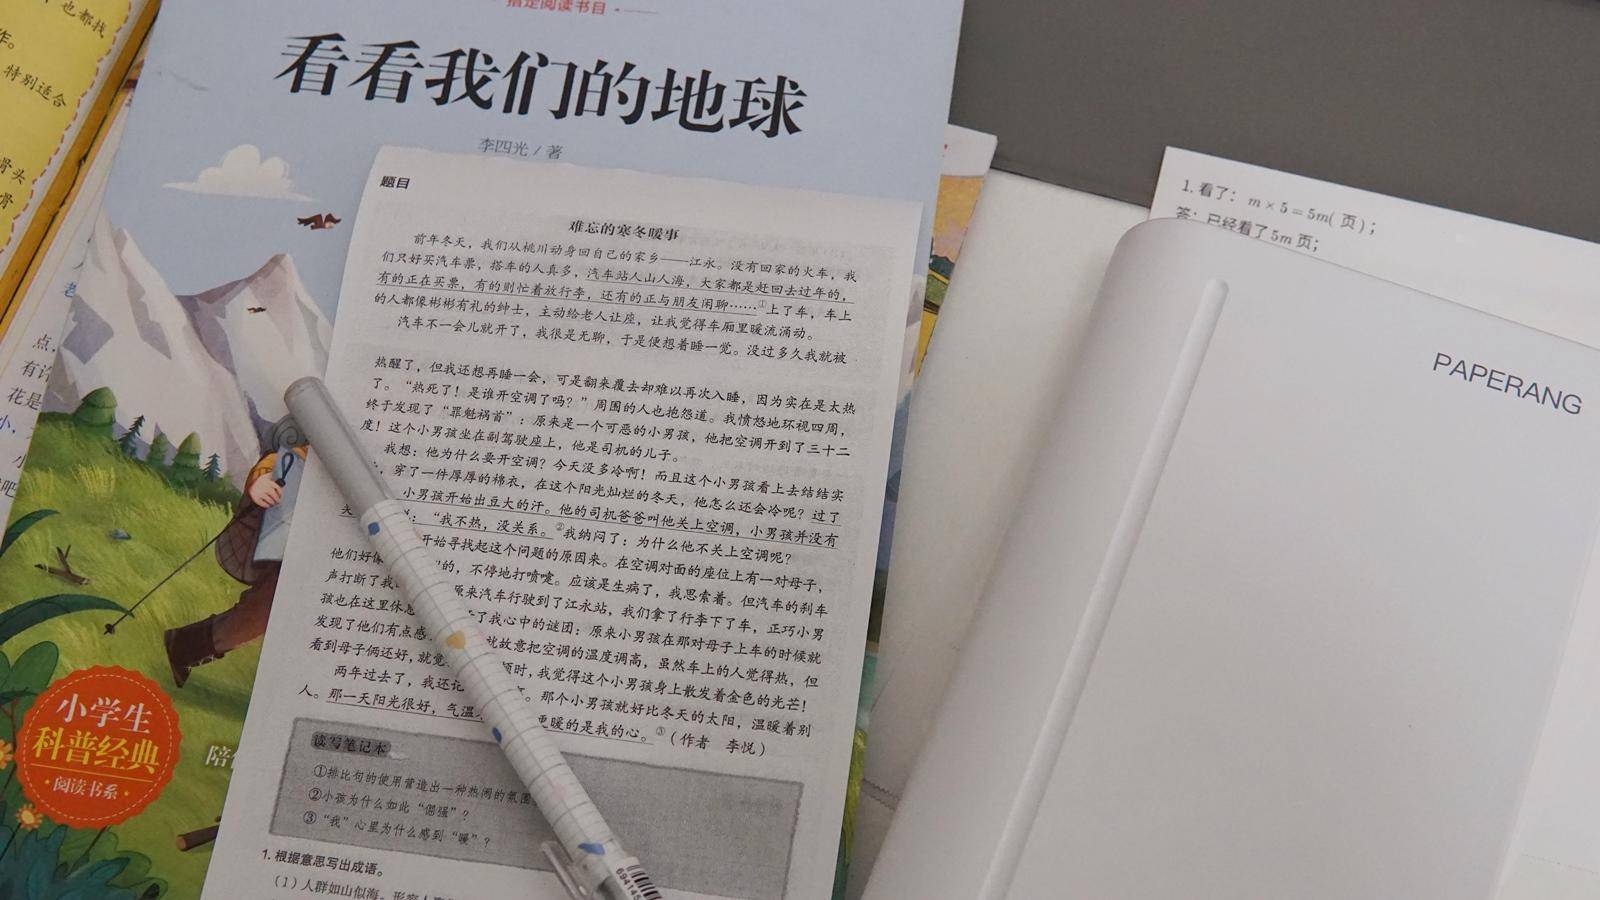 也都找
作。
特别适合
骨头
骨
指定阅读书目
看看我们的地球
李四光/著
题目
难忘的寒冬暖事
前年冬天，我们从桃川动身回自己的家乡——江永。没有回家的火车，我
们只好买汽车票，搭车的人真多，汽车站人山人海，大家都是赶回去过年的，
有的正在买票，有的则忙着放行李，还有的正与朋友闲聊……①上了车，车上
的人都像彬彬有礼的绅士，主动给老人让座，让我觉得车厢里暖流涌动。
汽车不一会儿就开了，我很是无聊，于是便想着睡一觉。没过多久我就被
热醒了，但我还想再睡一会，可是翻来覆去却难以再次入睡，因为实在是太热
了。“热死了！是谁开空调了吗？”周围的人也抱怨道。我愤怒地环视四周，
终于发现了“罪魁祸首”：原来是一个可恶的小男孩，他把空调开到了三十二
度！这个小男孩坐在副驾驶座上，他是司机的儿子。
我想：他为什么要开空调？今天没多冷啊！而且这个小男孩看上去结结实
，穿了一件厚厚的棉衣，在这个阳光灿烂的冬天，他怎么还会冷呢？过了
小男孩开始出豆大的汗。他的司机爸爸叫他关上空调，小男孩并没有
：“我不热，没关系。②我纳闷了：为什么他不关上空调呢？
开始寻找起这个问题的原因来。在空调对面的座位上有一对母子，
他们好像 的，不停地打喷嚏。应该是生病了，我思索着。但汽车的刹车
声打断了我 原来汽车行驶到了江永站，我们拿了行李下了车，正巧小男
孩也在这里休息 了我心中的谜团：原来小男孩在那对母子上车的时候就
发现了他们有点感 就故意把空调的温度调高，虽然车上的人觉得热，但
看到母子俩还好，就觉 顿时，我觉得这个小男孩身上散发着金色的光芒！
两年过去了，我还记 。那个小男孩就好比冬天的太阳，温暖着别
人。那一天阳光很好，气温 更暖的是我的心。③（作者 李悦）
读写笔记本
①排比句的使用营造出一种热闹的氛围
②小孩为什么如此“倔强”？
③“我”心里为什么感到“暖”？
1.根据意思写出成语。
（1）人群如山似海。形容人
694145
点，
有许
花是
小，
小
吧
小学生
科普经典
阅读书系
陪
1.看了：m×5=5m(页)；
答：已经看了5m页；
PAPERANG